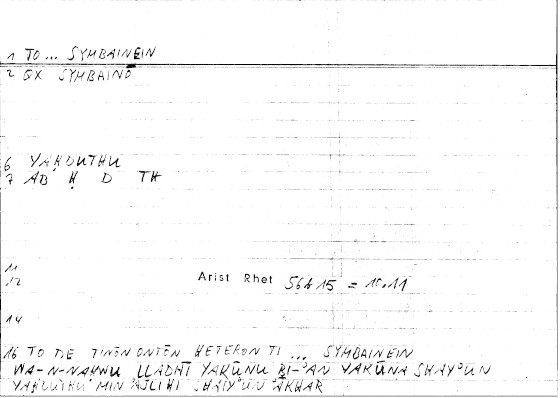 1 TO ... SYMBAINEIN
2 QX SYMBAINŌ
6 YAḤDUTHU
7 AB Ḥ D TH
11
12 Arist Rhet 56b15 = 10.11
14
16 TO DE TINŌN ONTŌN HETERON TI ... SYMBAINEIN
WA-N-NAḤWU LLADHĪ YAKŪNU BI-ʾAN YAKŪNA SHAYʾUN
YAḤDUTHU MIN AJLIHI SHAYʾUN ĀKHAR